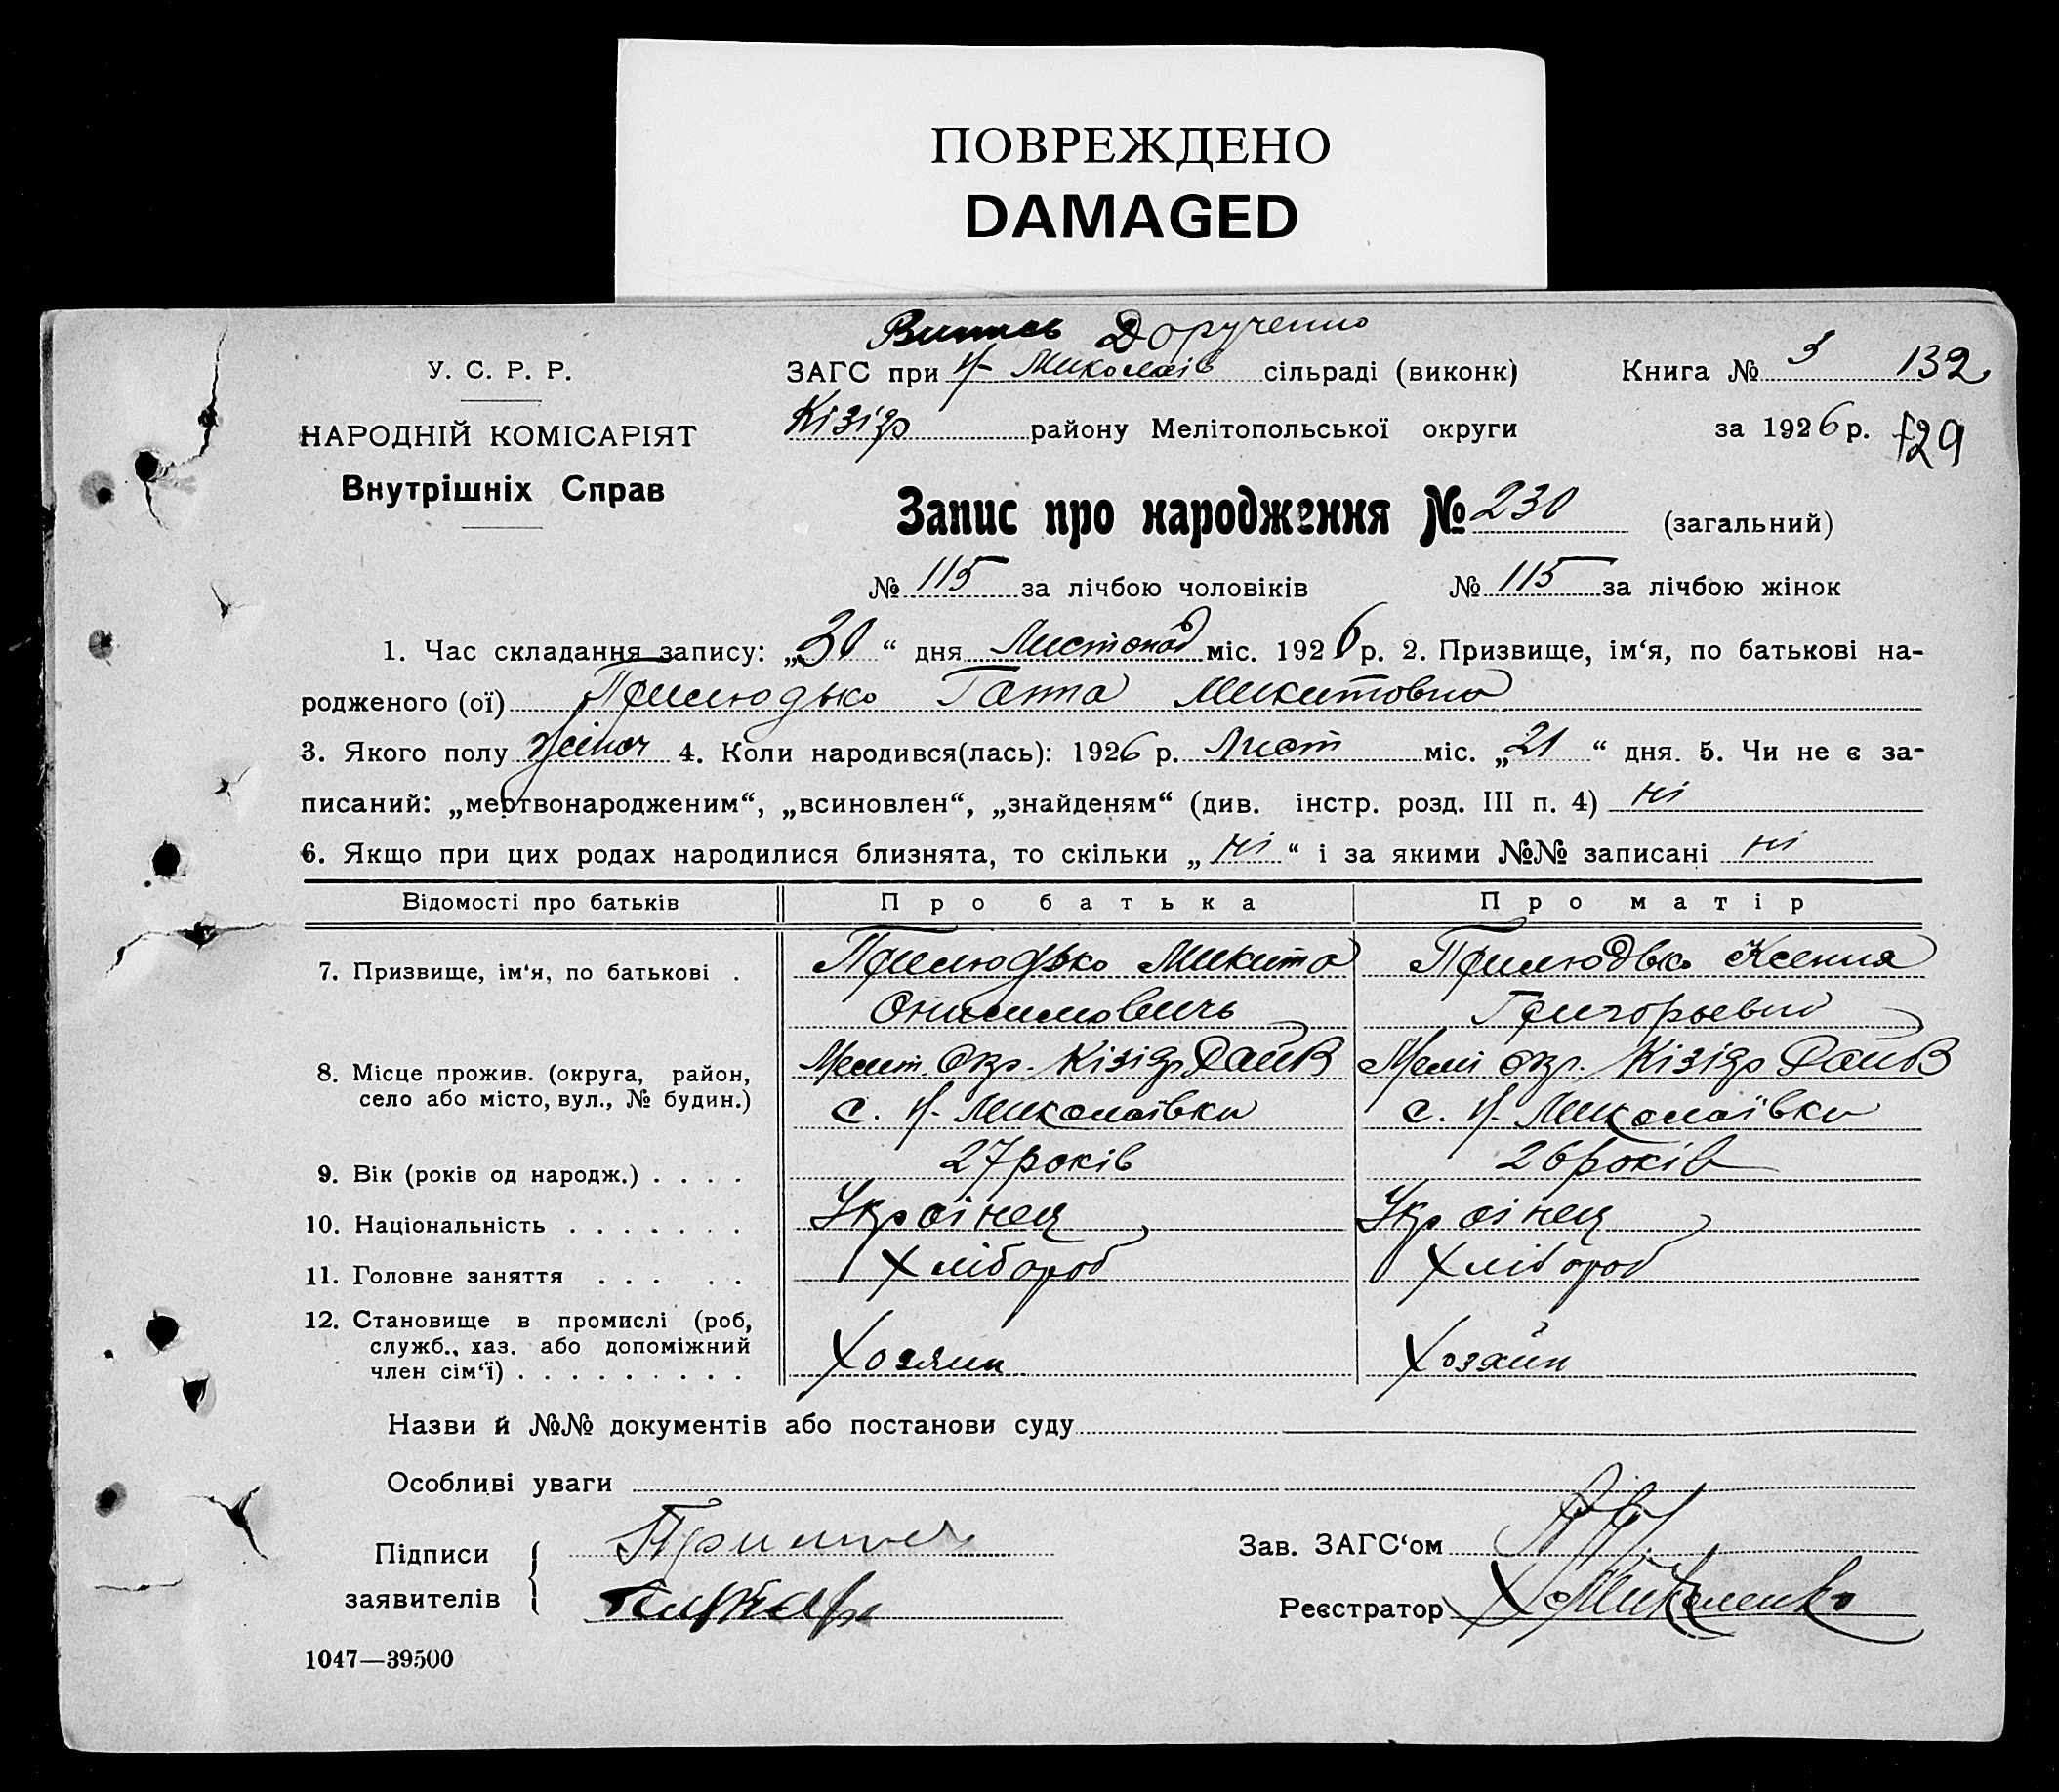 ПОВРЕЖДЕНО
DAMAGED
Витяг Доручено
У. С. Р. Р.
ЗАГС при Н-Миколаїв сільраді (виконк)
Книга № 3 132
НАРОДНІЙ КОМІСАРІЯТ
Внутрішніх Справ
Кізіяр району Мелітопольської округи
за 1926 р. 129
Запис про народження № 230 (загальний)
№ 115 за лічбою чоловіків № 115 за лічбою жінок
1. Час складання запису: „30“ дня Листопад міс. 1926 р. 2. Призвище, ім‘я, по батькові на-
родженого (ої) Прилюдько Ганна Микитовна
3. Якого полу жіноч 4. Коли народився(лась): 1926 р. Лист міс. „21“ дня. 5. Чи не є за-
писаний: „мертвонародженим“, „всиновлен“, „знайденям“ (див. інстр. розд. III п. 4) ні
6. Якщо при цих родах народилися близнята, то скільки „ні“ і за якими №№ записані ні
Відомості про батьків Про батька Про матір
7. Призвище, ім‘я, по батькові . Прилюдько Микита Прилюдько Ксения
Онисимовичь Григорьевна
8. Місце прожив. (округа, район, Мелит. Окр. Кізіяр Район Мелі окр. Кізіяр Район
село або місто, вул., № будин.) с. Н-Миколаівка с. Н-Миколаївка
9. Вік (років од народж.) . . . . 27 років 26 років
10. Національність . . . . . . . Українец Українец
11. Головне заняття . . . . . Хлібороб Хлібороб
12. Становище в промислі (роб,
служб., хаз. або допоміжний Хозяин Хозяйн
член сім‘ї) . . . . . . . . .
Назви й №№ документів або постанови суду
Особливі уваги
Підписи
заявителів
Зав. ЗАГС‘ом
Реєстратор
1047—39500